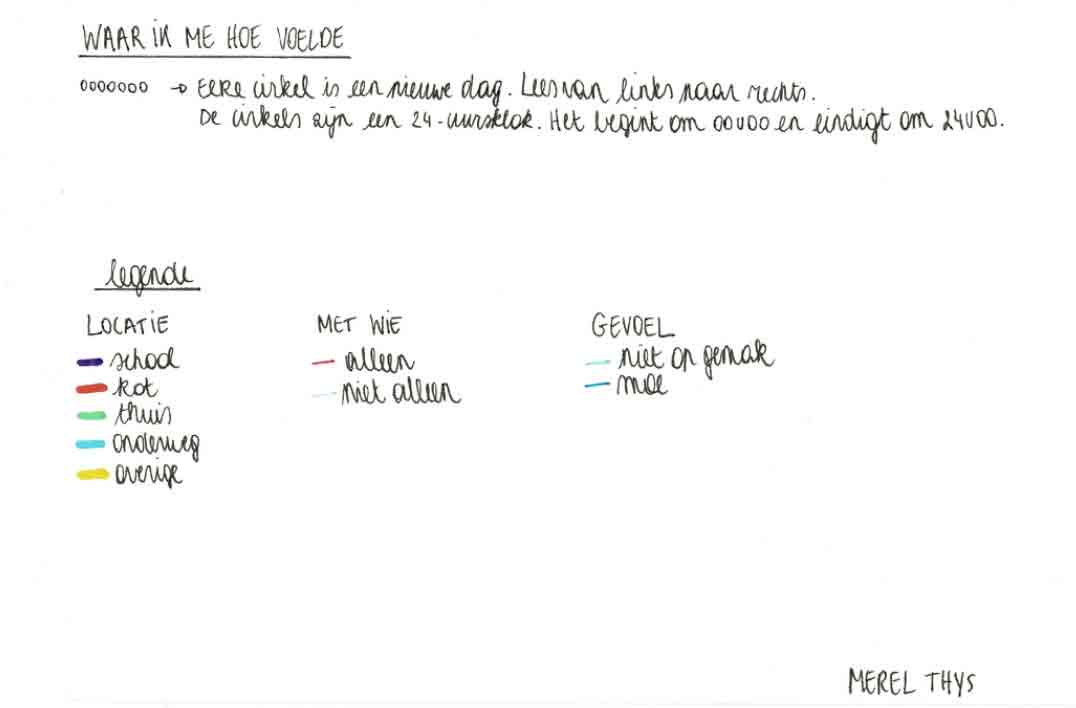 WAAR IK ME HOE VOELDE
0000000 → Elke cirkel is een nieuwe dag. Lees van links naar rechts.
De cirkels zijn een 24-uursklok. Het begint om 00u00 en eindigt om 24u00.
legende
LOCATIE
school
kot
thuis
onderweg
overige
MET WIE
alleen
niet alleen
GEVOEL
niet op gemak
moe
MEREL THYS